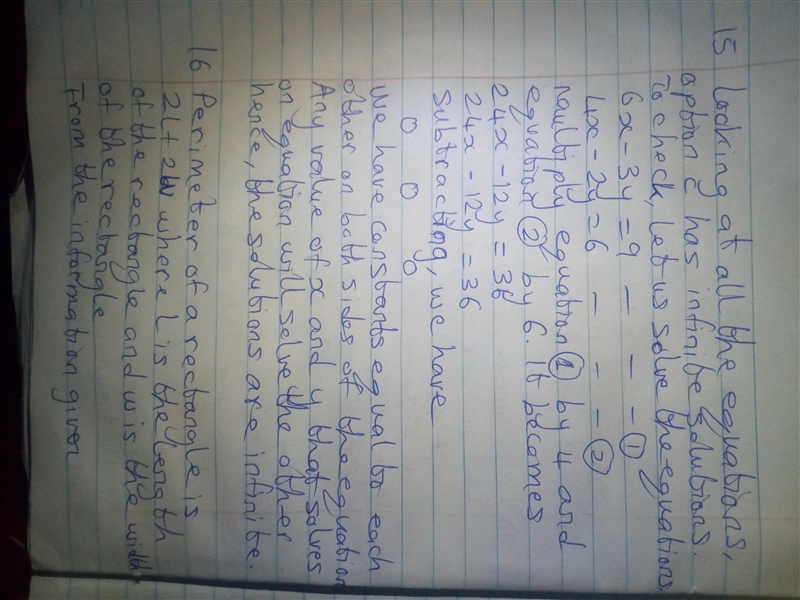 15 Looking at all the equations,
option C has infinite solutions.
To check, let us solve the equations
6x - 3y = 9 - - - ①
4x - 2y = 6 - - - ②
multiply equation ① by 4 and
equation ② by 6. It becomes
24x - 12y = 36
24x - 12y = 36
subtracting, we have
0 0 0
We have constants equal to each
other on both sides of the equation
Any value of x and y that solves
on equation will solve the other
hence, the solutions are infinite.
16 Perimeter of a rectangle is
2L + 2W where L is the length
of the rectangle and w is the width
of the rectangle
From the information given